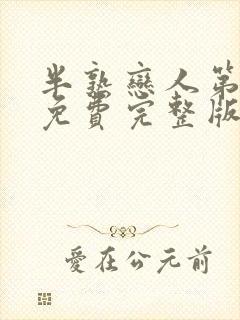 半熟戀人第
免費完整版
愛在公元前